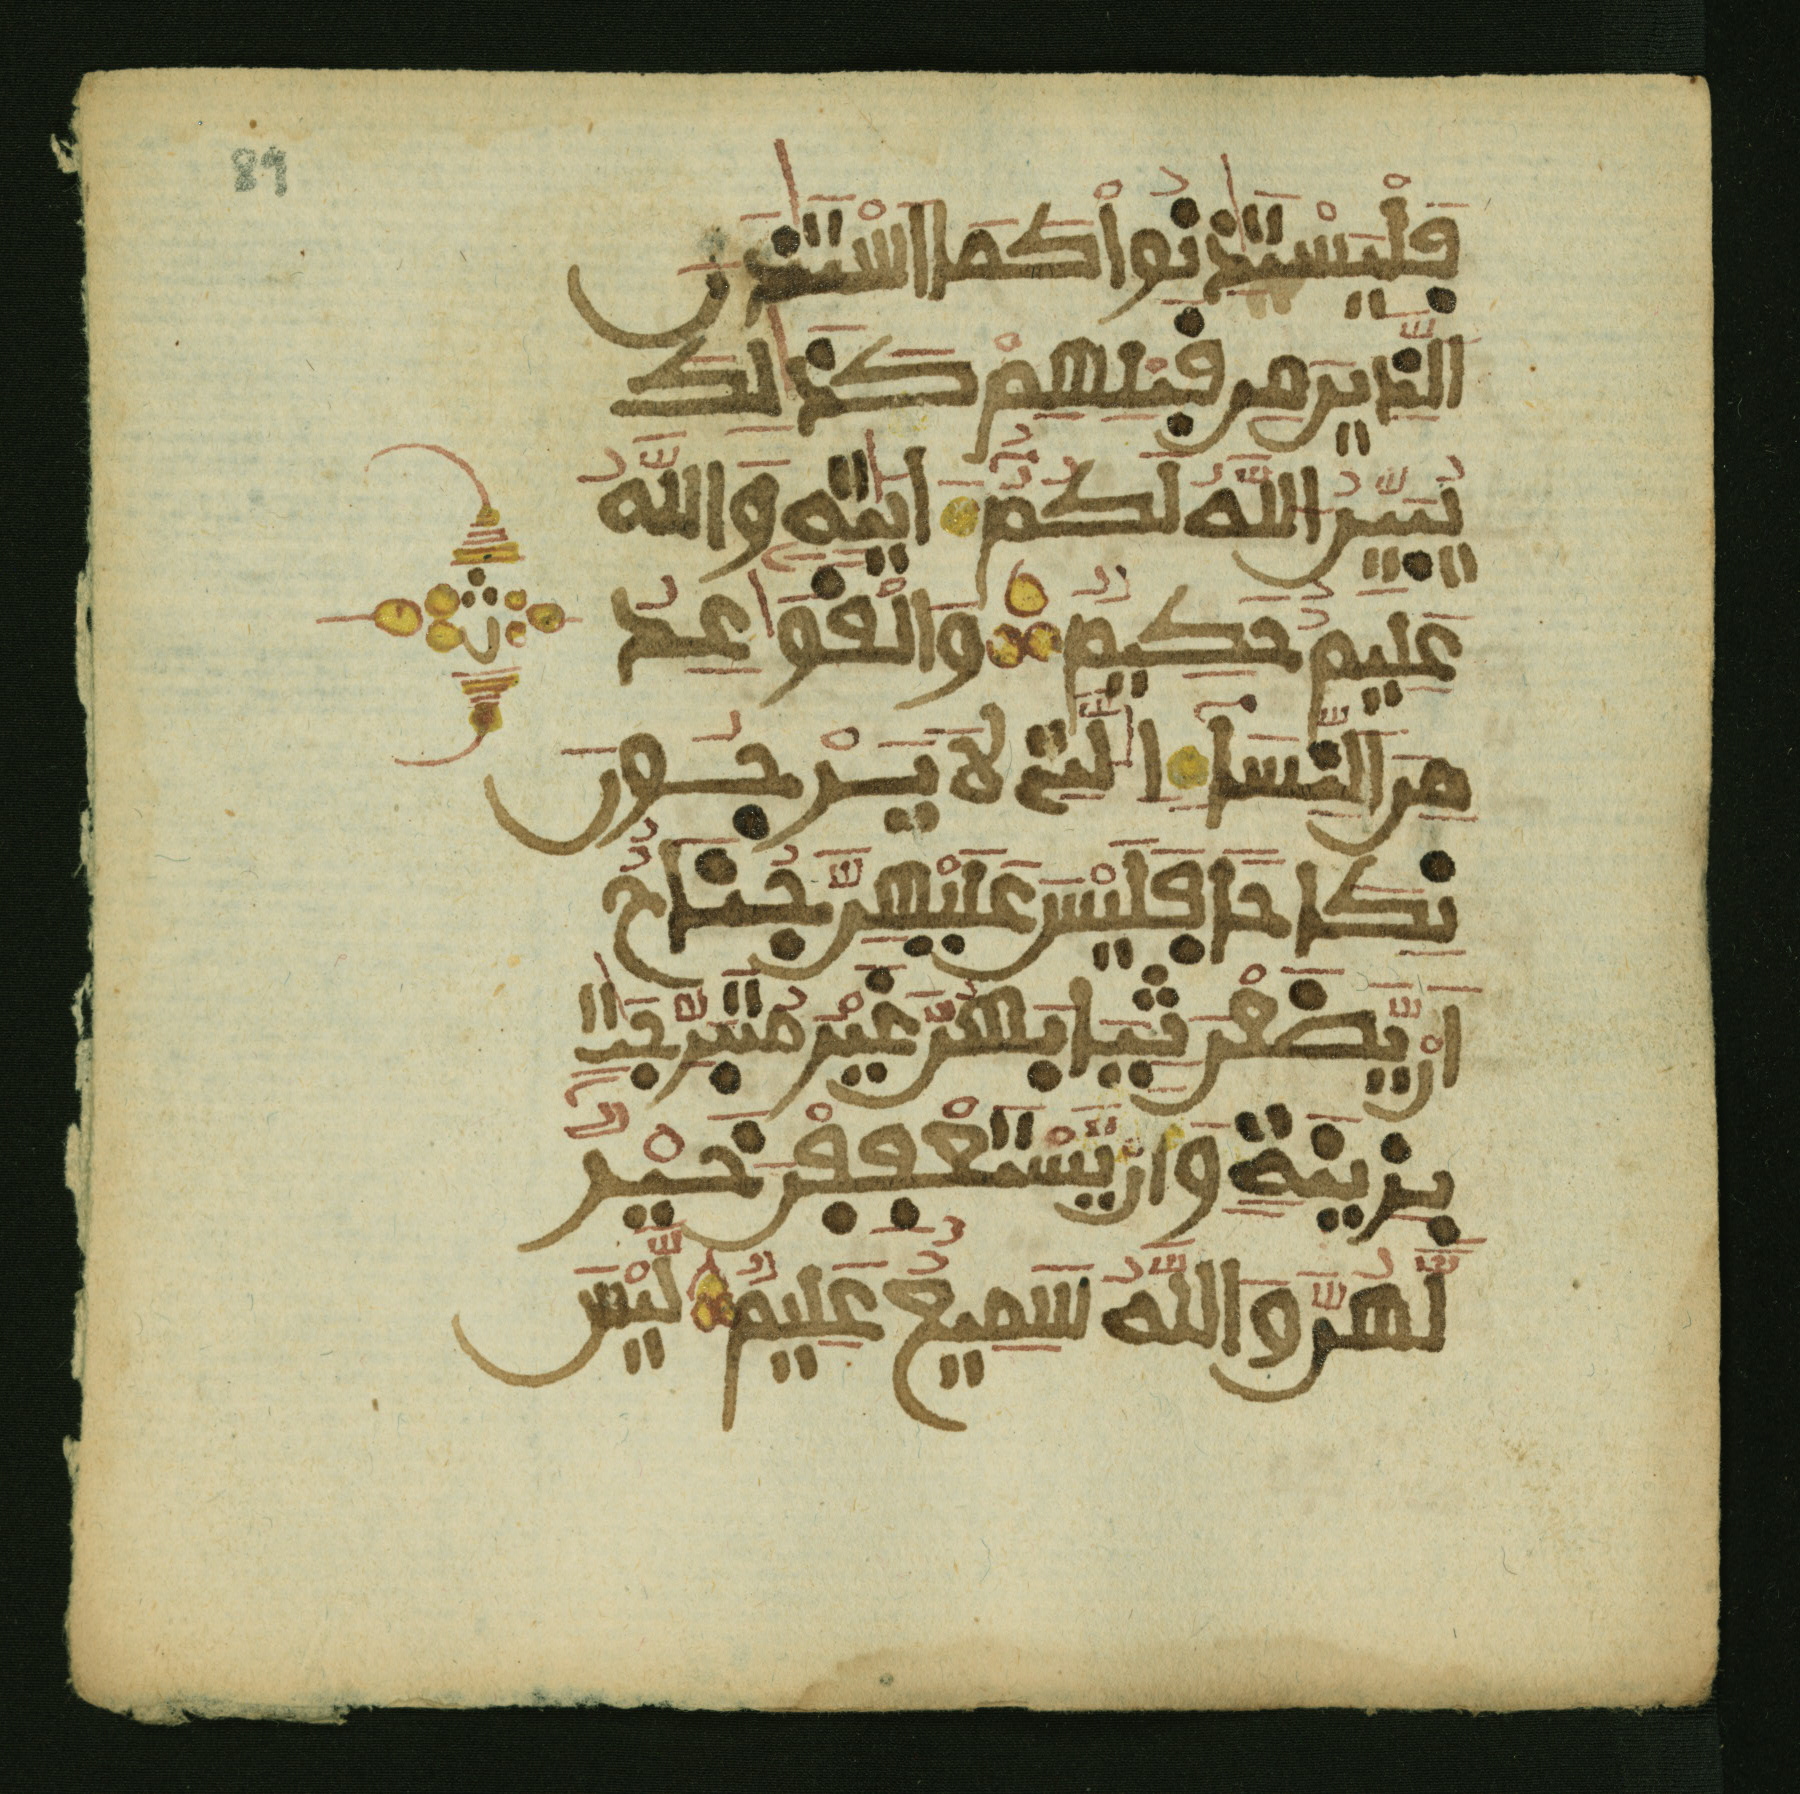 89
فَلْيَسْتَٰذِنُوا۟ كَمَا اَسْتَٰذَنَ
اَلذِينَ مِن قَبْلِهِمْ كَذَٰلِكَ
يُبَيِّنُ اُللَّهُ لَكُمُۥٓ ءَايَٰتِهِۦ وَاللَّهُ
عَلِيمٌ حَكِيمٌ وَالْقَوَٰعِدُ
مِنَ اَلنِّسَآءِ اِلَّٰتِے لَا يَرْجُونَ
نِكَاحًا فَلَيْسَ عَلَيْهِنَّ جُنَاحٌ
اَنْ يَّضَعْنَ ثِيَابَهُنَّ غَيْرَ مُتَبَرِّجَٰتِۭ
بِزِينَةٍ وَأَنْ يَّسْتَعْفِفْنَ خَيْرٌ
لَّهُنَّ وَاللَّهُ سَمِيعٌ عَلِيمٌ لَّيْسَ